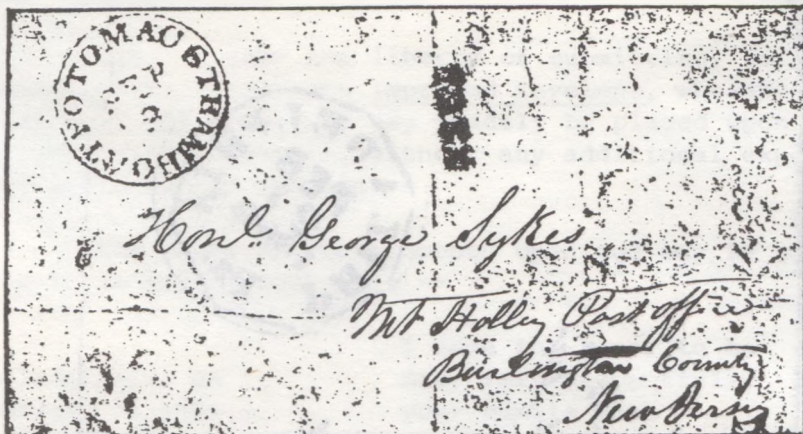 POTOMAC STEAMBOAT
SEP
9
Honl. George Sykes
Mt Holley Post office
Burlington County
New Jersey